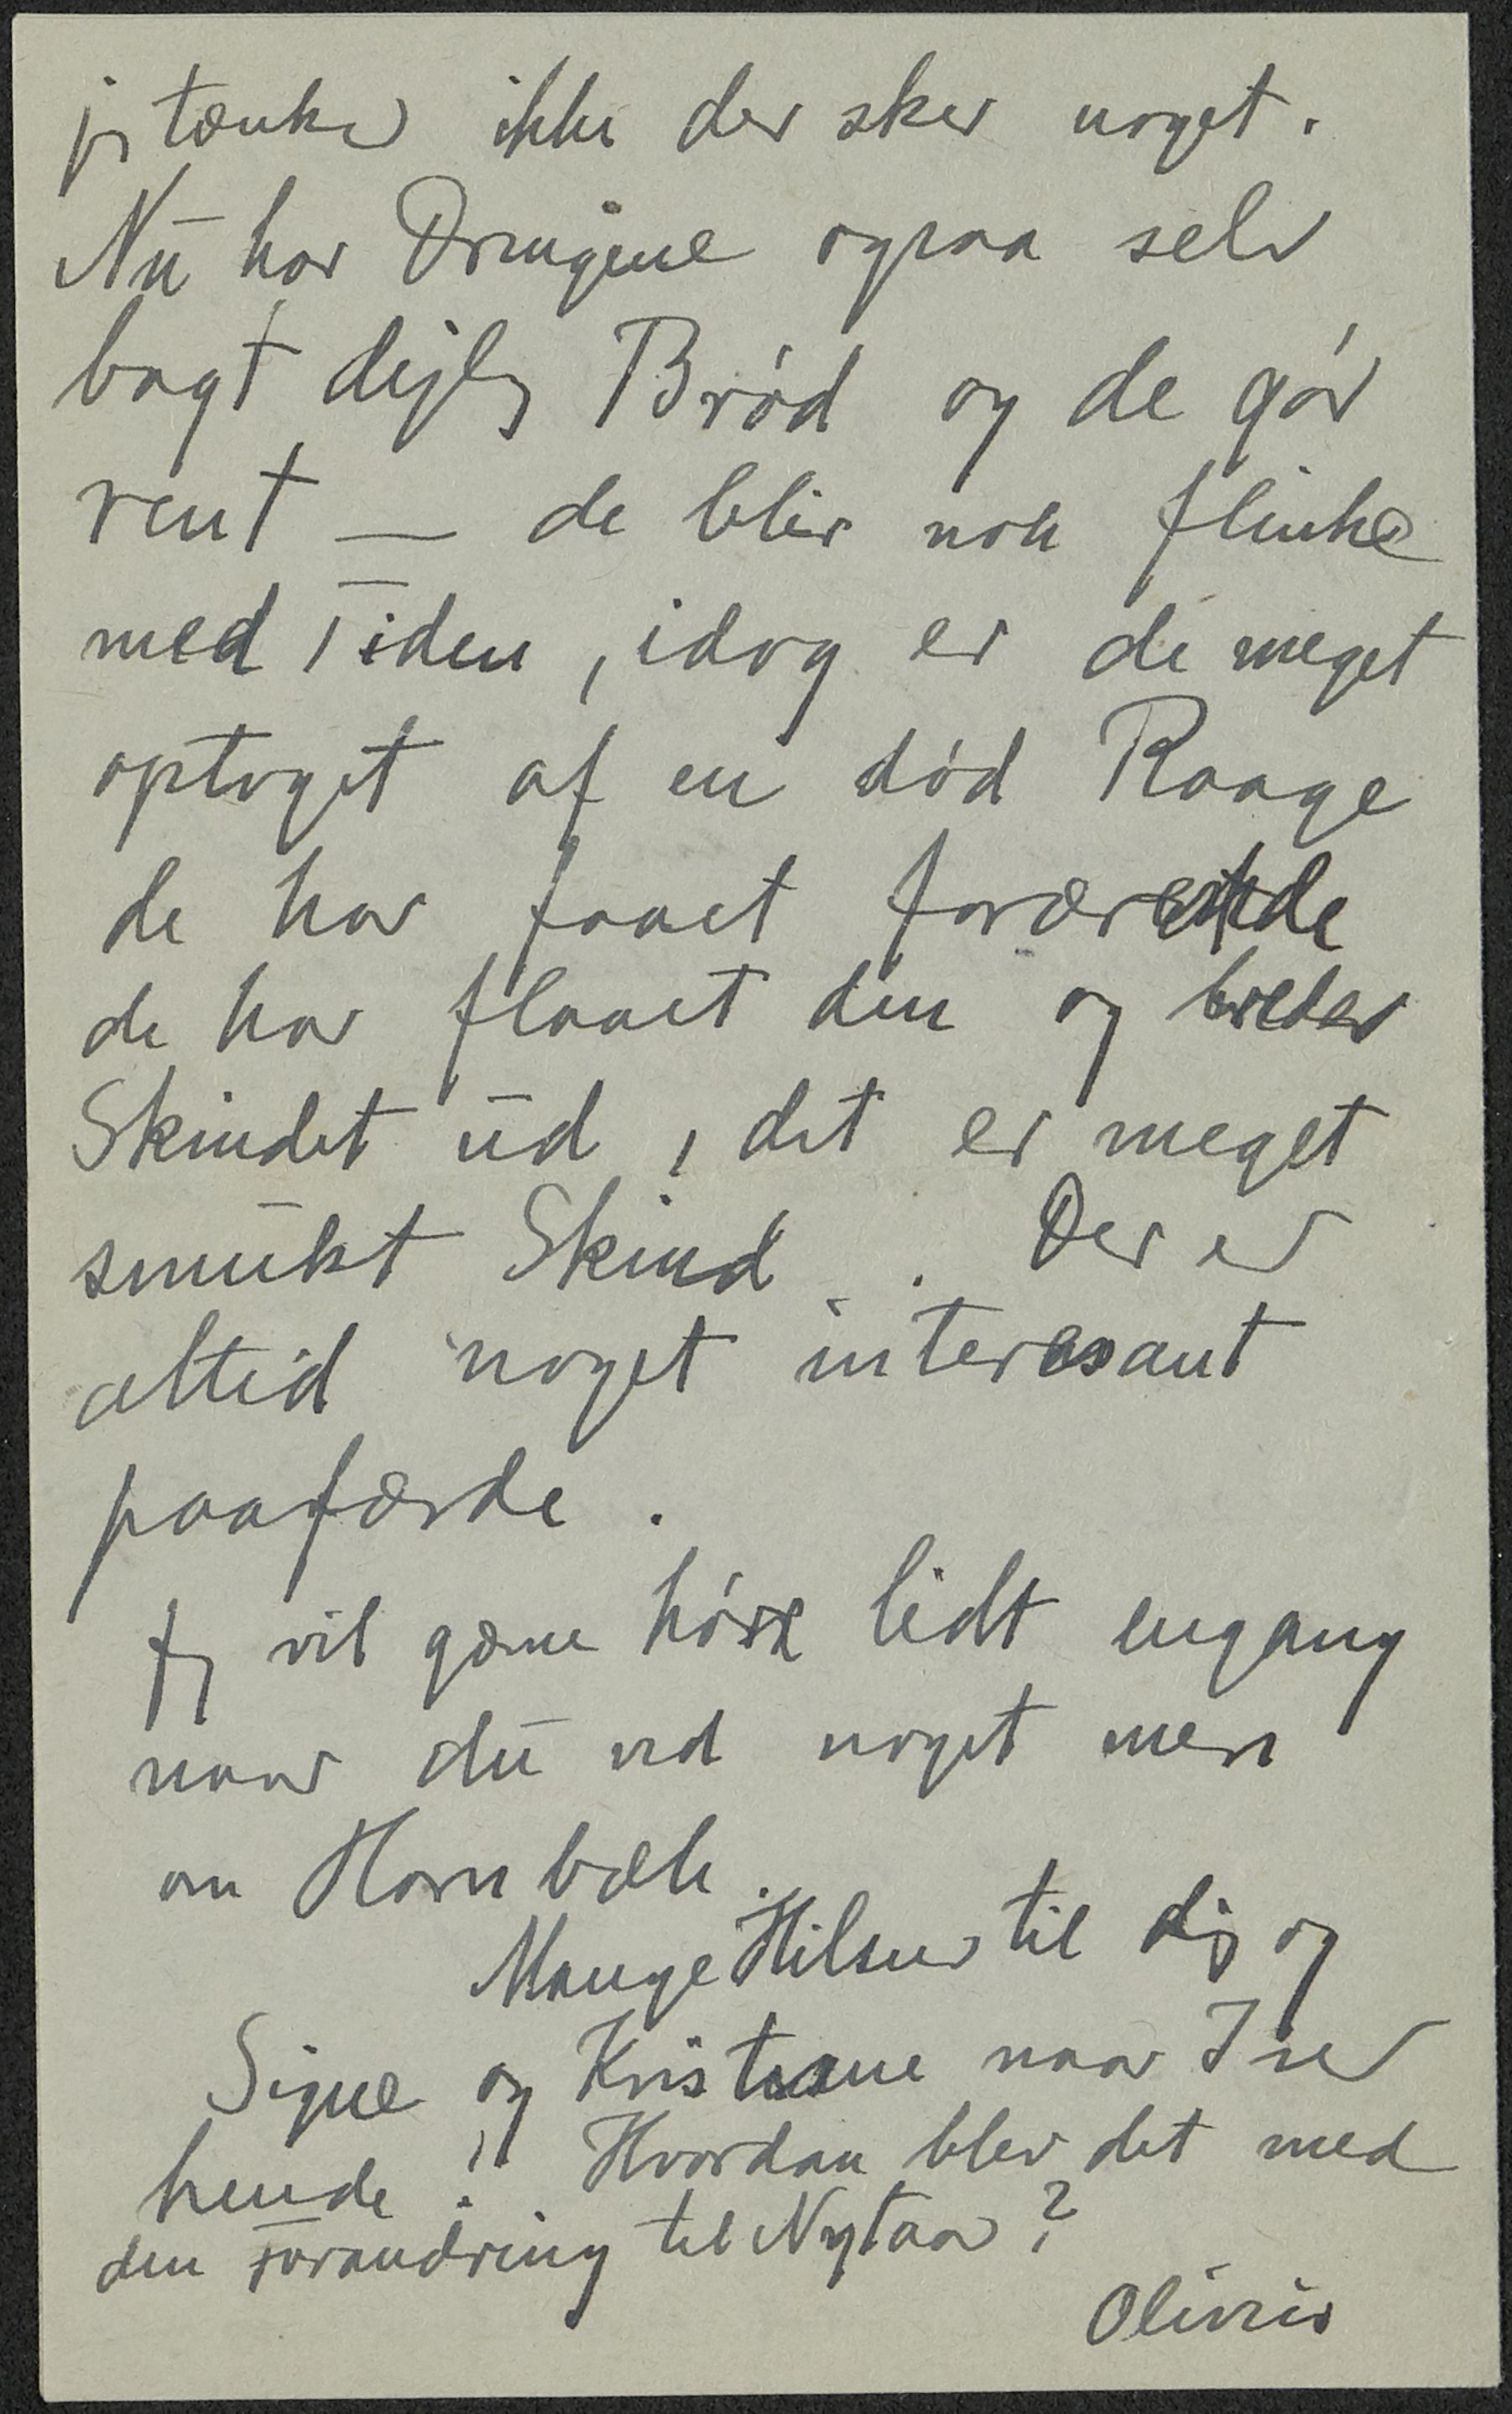 jeg tænker ikke der sker noget.
Nu har Drengene ogsaa selv
bagt dejlig Brød og de gør
rent — de blir nok flinke
med Tiden, idag er de meget
optaget af en død Raage
de har faaet forærende
de har flaaet den og breder
Skindet ud, det er meget
smukt Skind. Der er
altid noget interesant
paafærde.
Jeg vil gærne høre lidt engang
naar du ved noget mere
om Hornbæk.
Mange Hilsner til dig og
Signe og Kristiane naar I ser
hende! Hvordan blev det med
den Forandring til Nytaar?
Olivia